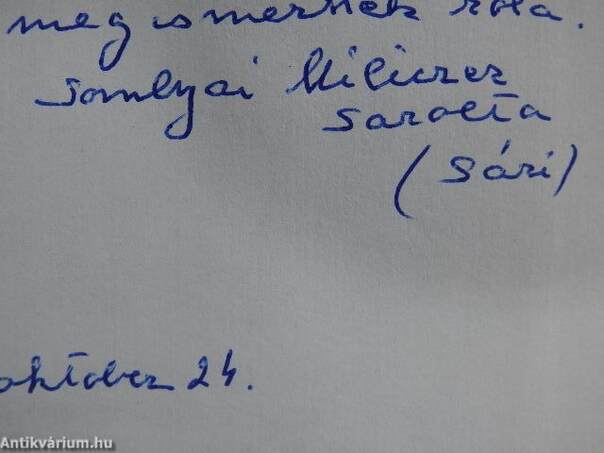 megismernek róla.
Somlyai Miliczer
Sarolta
(Sári)
október 24.
Antikvárium.hu